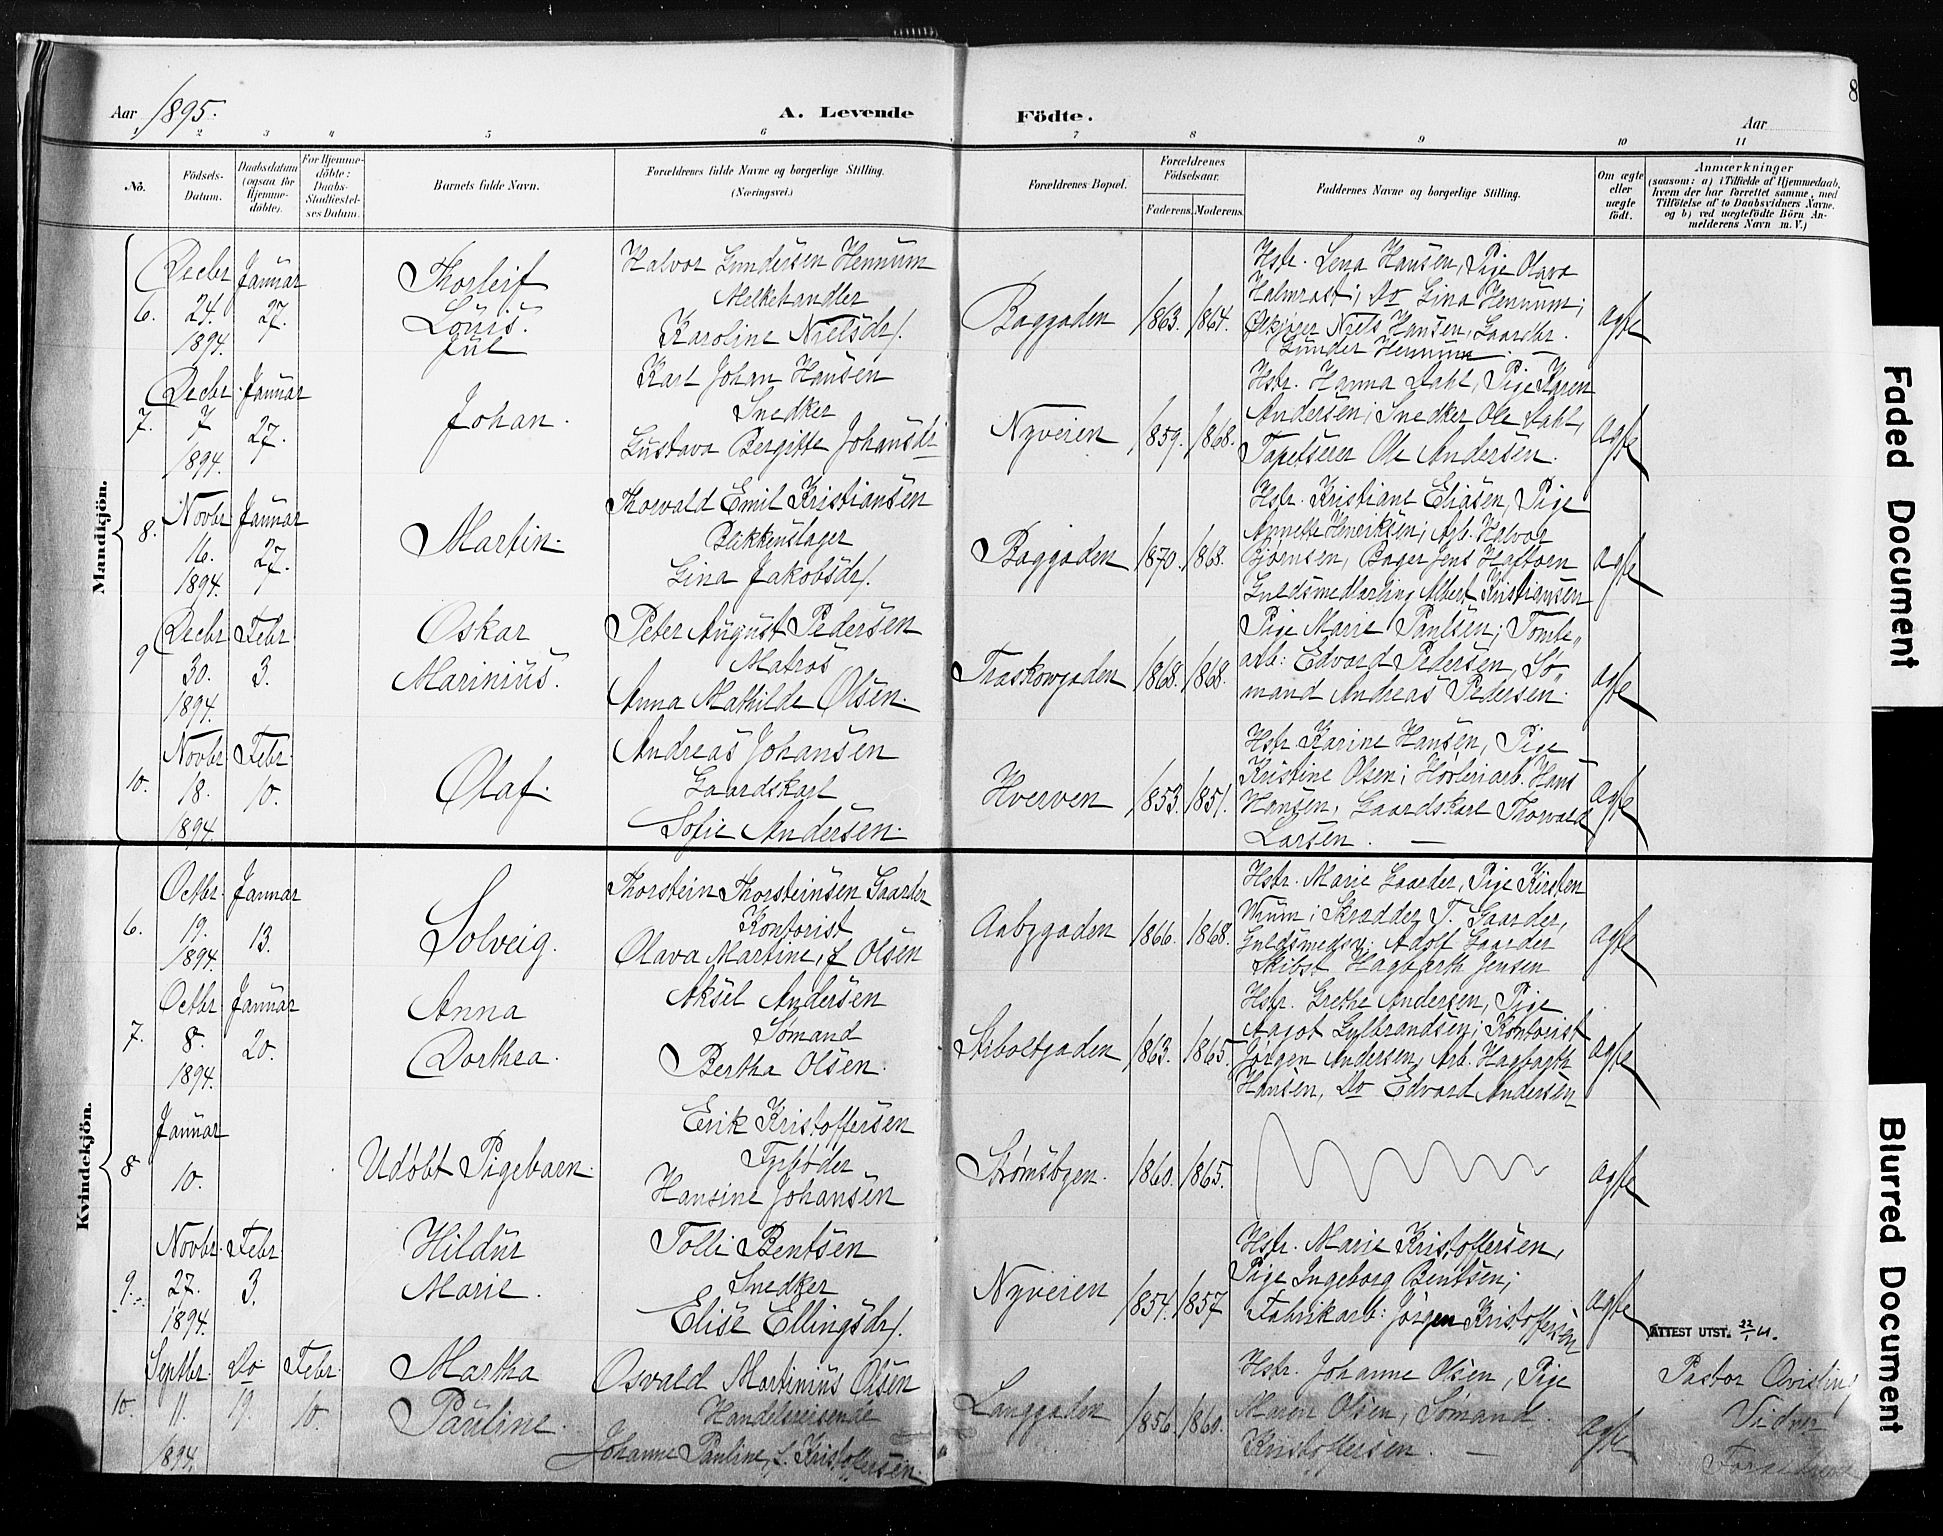 8
Aar 1895.
A. Levende Födte.
Aar
2 3 4 5 6 7 8 9 10 11
No.
Födsels-Datum.
Daabsdatum (ogsaa for Hjemmedöbte).
For Hjemmedöbte: Daabs-Stadfæstelses Datum.
Barnets fulde Navn.
Forældrenes fulde Navne og borgerlige Stilling. (Næringsvei.)
Forældrenes Bopæl.
Forældrenes Födselsaar.
Faderens. Moderens.
Faddernes Navne og borgerlige Stilling.
Om ægte eller uægte födt.
Anmærkninger
(saasom: a) i Tilfælde af Hjemmedaab, hvem der har forrettet samme, med Tilföielse af to Daabsvidners Navne, og b) ved uægtefödte Börn Anmelderens Navn m. V.)
Mandkjön.
6.
Decbr 24. 1894.
Januar 27.
Thorleif
Louis.
Jul
Halvor Gundersen Hennum
Melkehandler
Karoline Nielsdr.
Baggaden
1863. 1864.
Hstr. Lena Hansen, Pige Olava
Halmrast; Do Gina Hennum;
Niels Hansen, Gaardbr.
Gunder Hennum. —
ægte
7.
Decbr 7 1894.
Januar 27.
Johan.
Karl Johan Hansen
Snedker
Gustava Bergitte Johansdr
Nyveien
1859. 1868.
Hstr. Hanna Dahl, Pige Karen
Andersen; Snedker Ole Dahl,
Tapetserer Ole Andersen.
ægte
8.
Novbr 16. 1894.
Januar 27.
Martin.
Thorvald Emil Kristiansen
Blikkenslager
Gina Jakobsdr.
Baggaden
1870. 1868.
Hstr. Kristiane Eliasen, Pige
Annette Henriksen; Arb. Halvor
Bjørnsen, Bager Jens Haftorn
Guldsmedlærling Albert Kristiansen
ægte
9
Decbr 30. 1894.
Febr 3.
Oskar
Marinius.
Peter August Pedersen
Matros
Anna Mathilde Olsen.
Traskowgaden
1868. 1868.
Pige Marie Paulsen; Tomte„
arb: Edvard Pedersen, Sø„
mand Andreas Pedersen.
ægte
10.
Novbr 18. 1894.
Febr. 10.
Olaf.
Andreas Johansen
Gaardskarl
Sofie Andersen.
Hverven
1853. 1851.
Hstr Karine Hansen, Pige
Kristine Olsen; Høvleriarb. Hans
Hansen, Gaardskarl Thorvald
Larsen. —
ægte
Kvindekjön.
6.
Octbr. 19. 1894.
Januar 13.
Solveig.
Thorstein Thorsteinsen Gaarder
Kontorist
Olava Martine, f Olsen
Aabygaden
1866. 1868.
Hstr. Marie Gaarder, Pige Kirsten
Wium; Skrædder T. Gaarder,
Guldsmedsv. Adolf Gaarder
Skibst. Hagbarth Jensen
ægte
7.
Octbr 8. 1894.
Januar 20.
Anna
Dorthea.
Aksel Andersen
Sømand
Bertha Olsen.
Stiboltgaden
1863. 1865
Hstr. Grethe Andersen, Pige
Aagot Gulbrandsen; Kontorist
Jørgen Andersen, Arb. Hagbarth
Hansen, Do Edvard Andersen
ægte
8
Januar 10.
Udøbt Pigebarn.
Erik Kristoffersen
Fyrbøder
Hansine Johansen
Strømsbyen.
1860. 1865.
ægte
9.
Novbr. 27. 1894.
Febr 3.
Hildur
Marie.
Tolli Bentsen
Snedker
Elise Ellingsdr.
Nyveien
1854. 1857
Hstr. Marie Kristoffersen,
Pige Ingeborg Bentsen;
Fabrikarb: Jørgen Kristoffersen
ægte
ATTEST UTST.
10.
Septbr. 11. 1894.
Do 19.
Febr. 10
Martha
Pauline.
Osvald Martinius Olsen
Handelsreisende
Johanne Pauline, f. Kristoffersen
Langgaden
1856. 1860.
Hstr. Johanne Olsen, Pige
Maren Olsen; Sømand
Kristoffersen. —
ægte
Pastor Qvisling
Vidner
Forældrene
Faded Document
Blurred Document